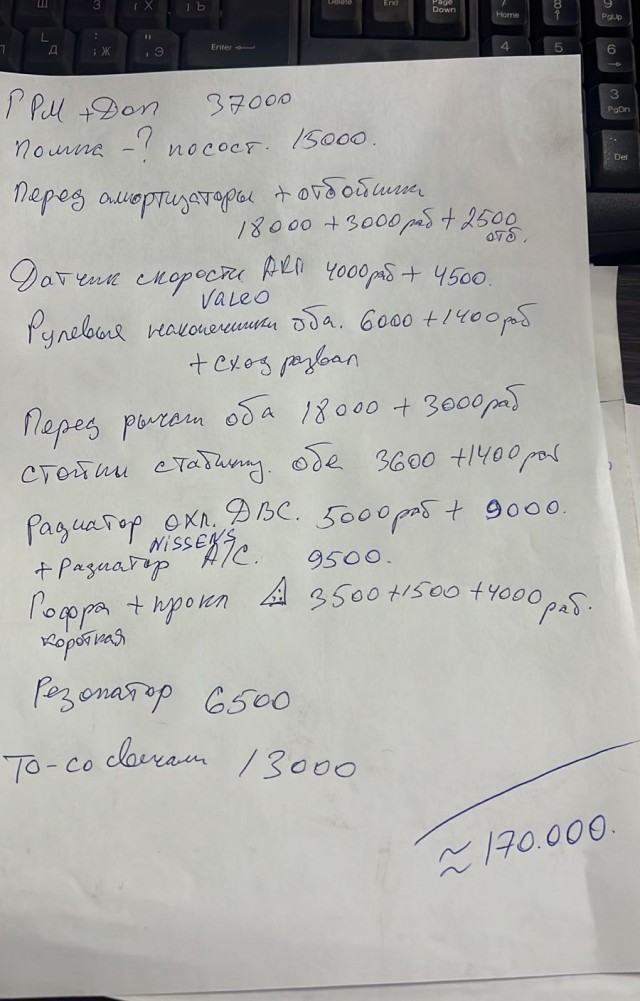 Delete
End
Page Down
Home
8
9 PgUp
Ш
З
Х
Ъ
Л Д
: Ж
" Э
Enter
4
5
6
3 PgDn
Del
ГРМ + Доп 37000
Помпа -? по сост. 15000.
Перед амортизаторы + отбойники
18000 + 3000 раб + 2500
отб.
Датчик скорости АКП 4000 раб + 4500.
VALEO
Рулевые наконечники оба. 6000 + 1400 раб
+ сход развал
Перед рычаги оба 18000 + 3000 раб
стойки стабилиз. обе 3600 + 1400 раб
Радиатор охл. ДВС. 5000 раб + 9000.
NISSENS
+ Радиатор A/C. 9500.
Гофра + прокл 3500 + 1500 + 4000 раб.
короткая
Резонатор 6500
ТО-со свечами 13000
≈ 170.000.